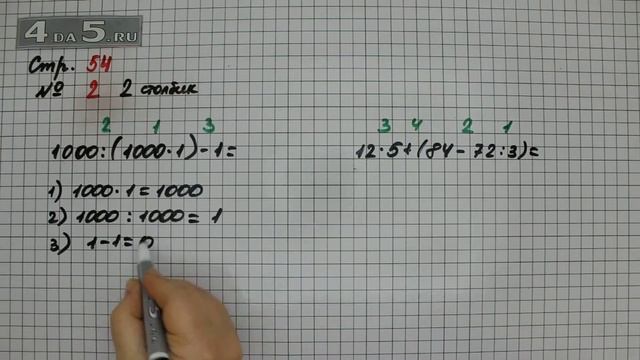 4DA5.RU
Стр. 54
№ 2 2 столбик
2 1 3
1000:(1000·1)-1=
1) 1000·1=1000
2) 1000:1000=1
3) 1-1=0
3 4 2 1
12·5+(84-72:3)=